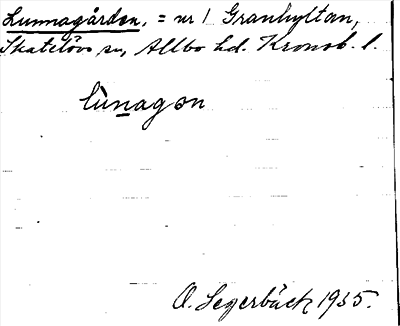 Lunnagården, = nr 1 Granhyltan,
Skatelövs sn, Allbo hd. Kronob. l.
lùnagən
O. Segerbäck 1935.